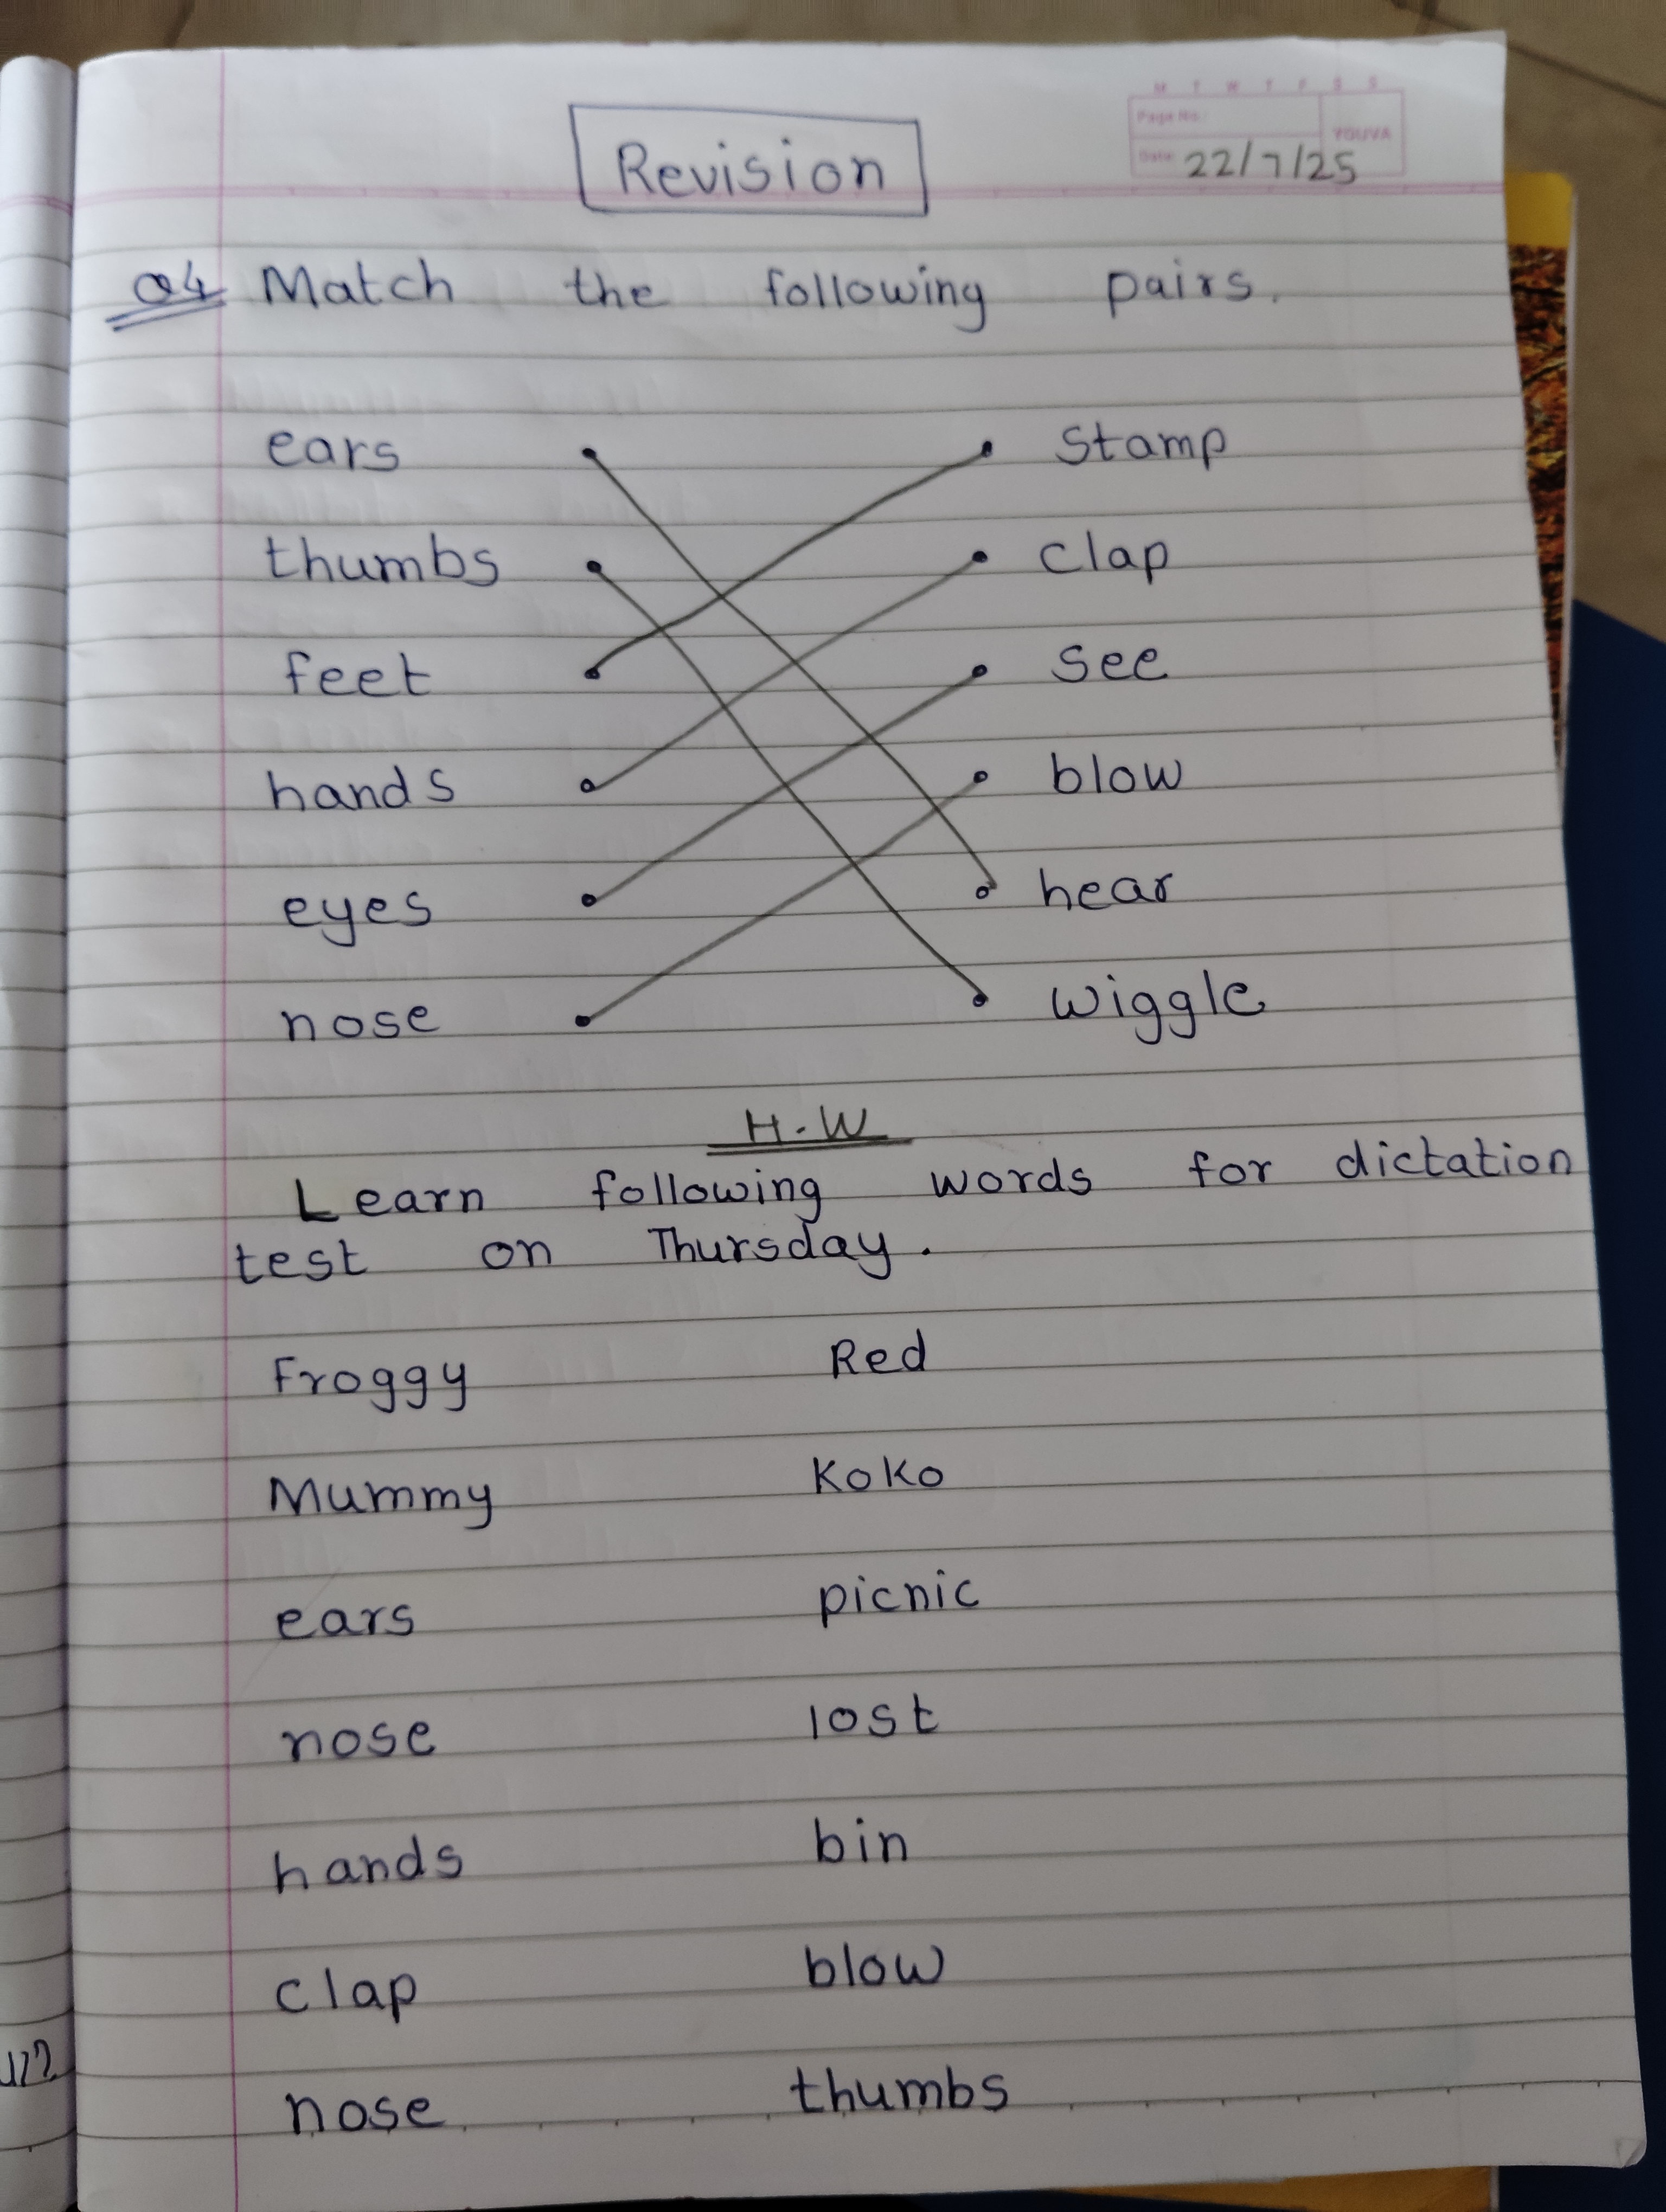 M T W T F S S
Page No.:
YOUVA
Date: 22/7/25
Revision
Q4 Match the following pairs.
ears stamp
thumbs clap
feet see
hands blow
eyes hear
nose wiggle
H.W
Learn following words for dictation
test on Thursday.
Froggy Red
Mummy Koko
ears picnic
nose lost
hands bin
clap blow
nose thumbs